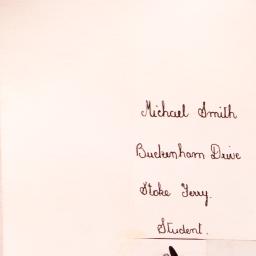 Michael Smith
Buckenham Drive
Stoke Ferry.
Student.